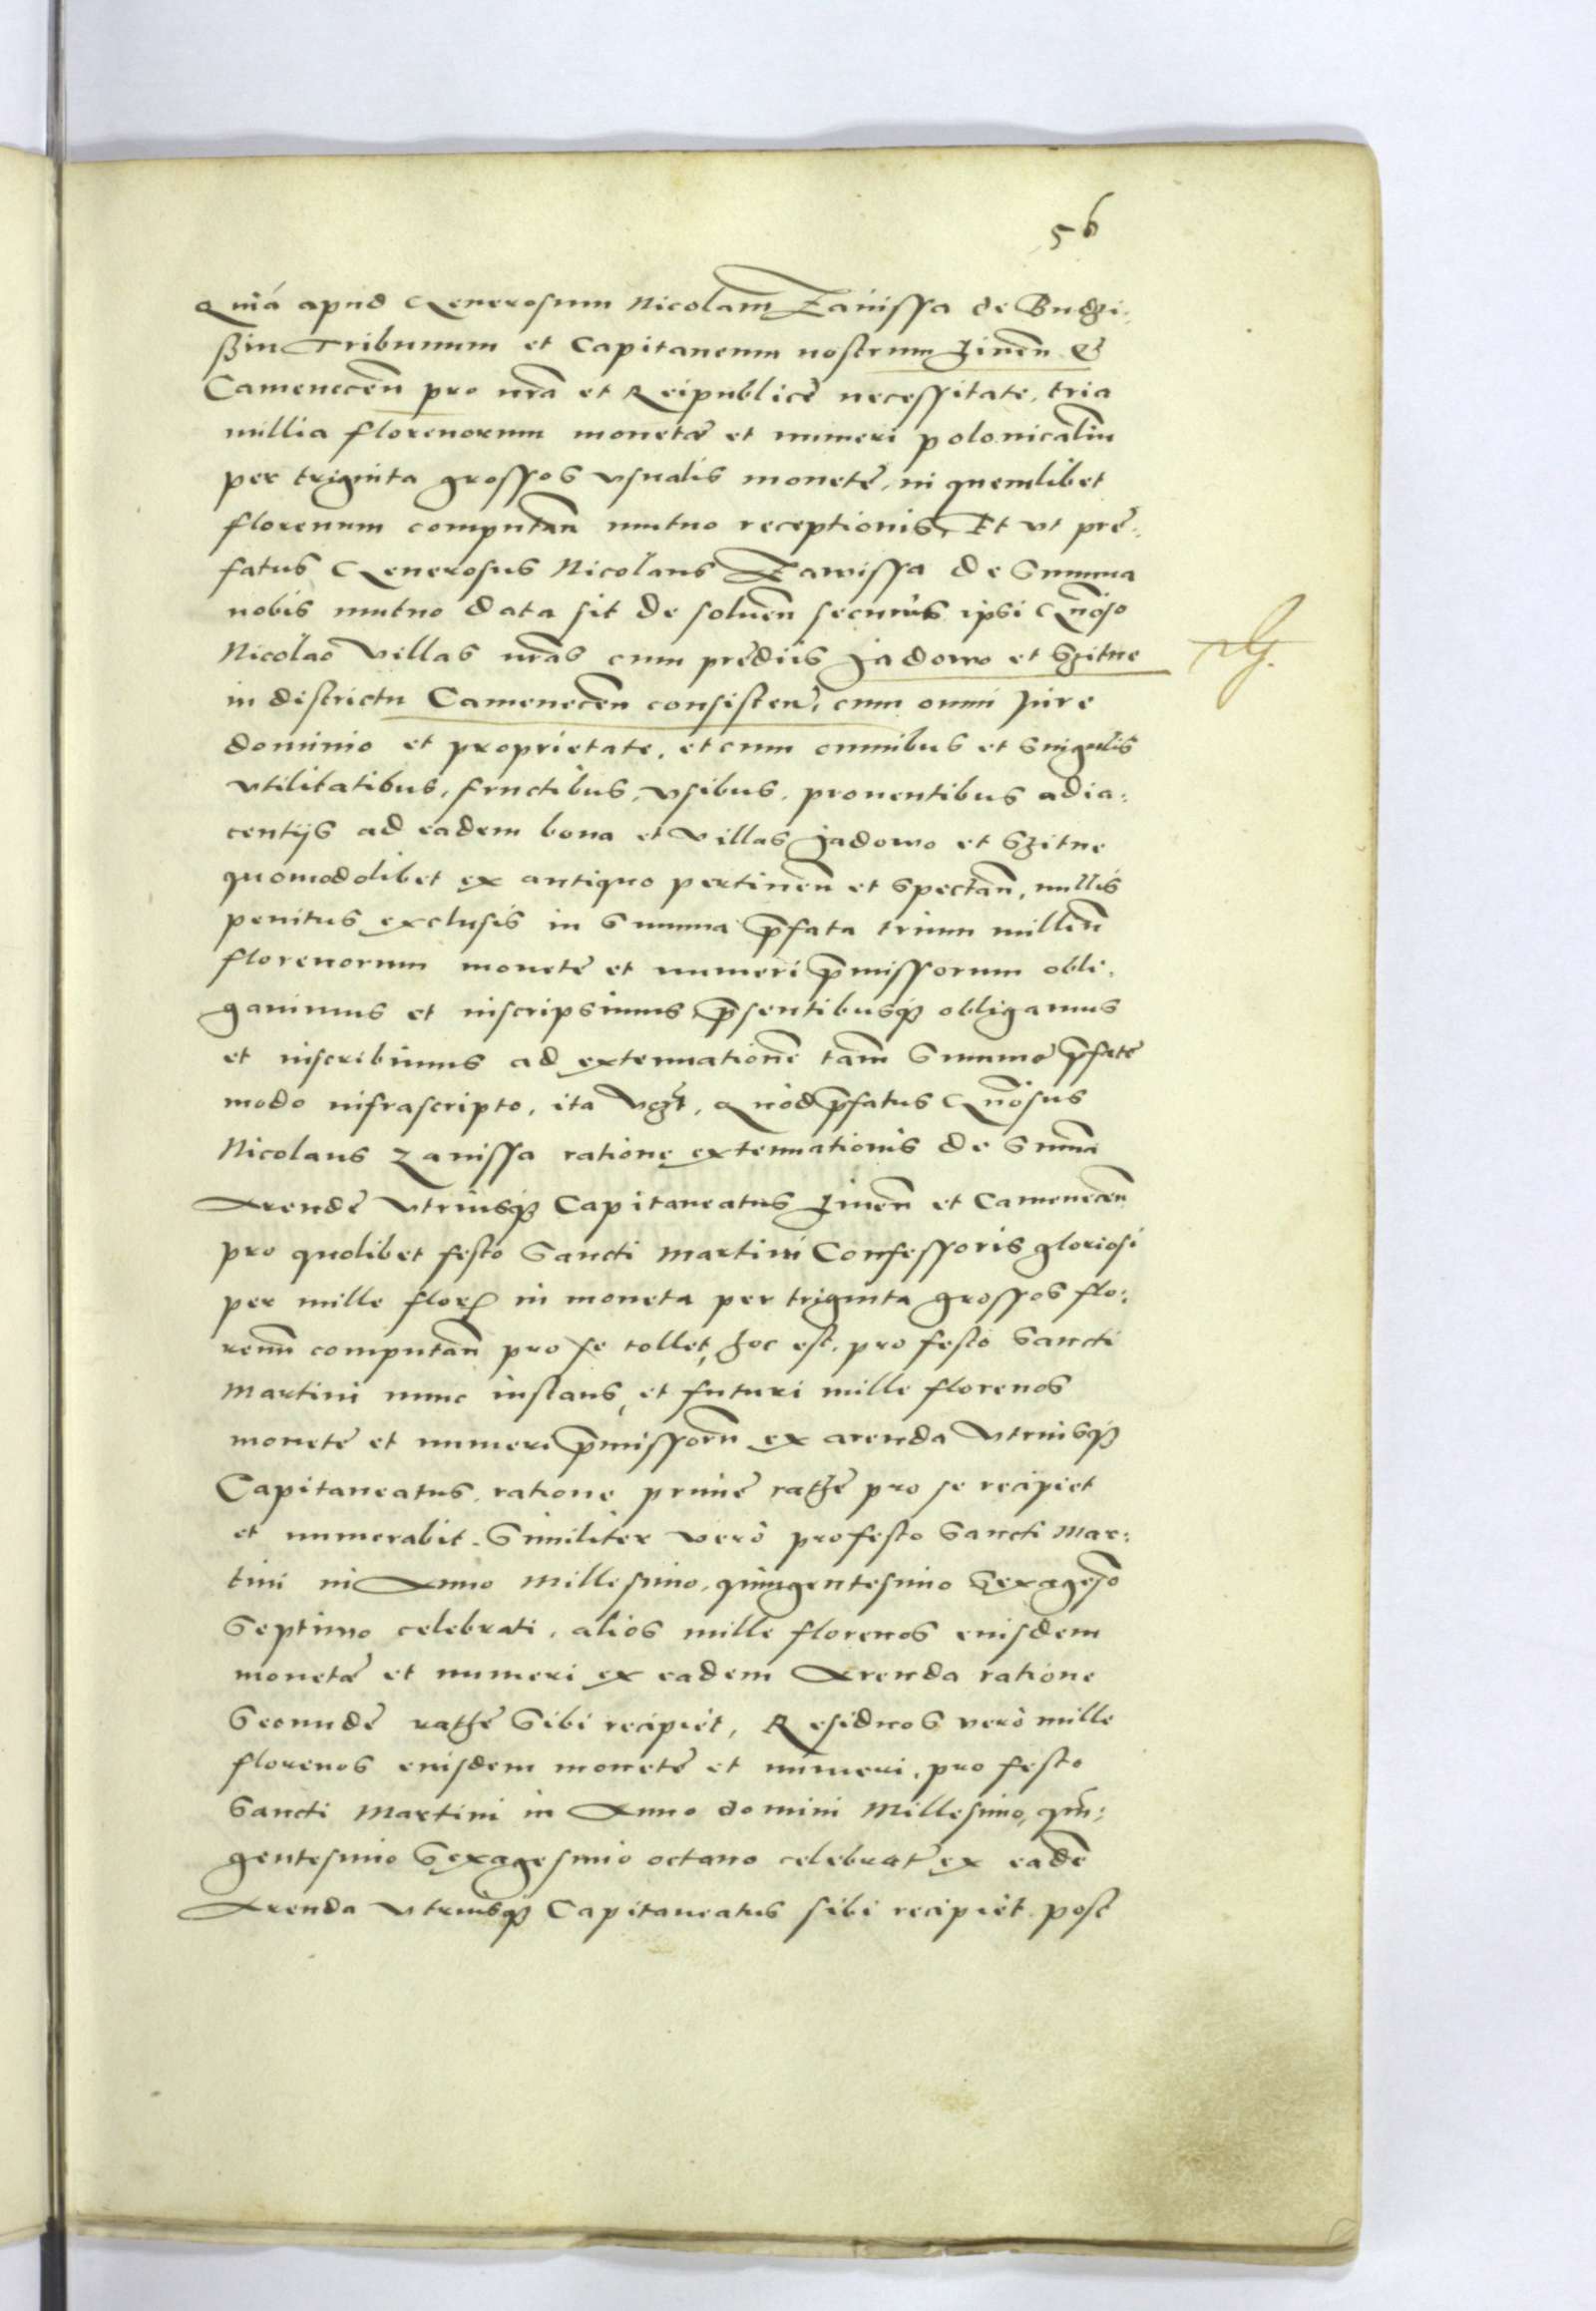 56
Quiá apud Generosum Nicolaum Zauissa de Budzi:
szin Tribunum et Capitaneum nostrum Jinen̄ et
Camenecen̄ pro nrā et Reipublicę necessitate, tria
millia florenorum monetæ et numeri polonicaliū
per triginta grossos vsualis monetę, in quemlibet
florenum computan̄ mutuo receptionis, Et vt prę:
fatus Generosus Nicolaus Zawissa de Summa
nobis mutuo data sit de soluen̄ securus ipsi Gnōso
Nicolao Villas nrās cum prędiis Jadowo et Szitne
in districtu Camenecen̄ consisten̄, cum omni Jure
dominio et proprietate, et cum omnibus et Singulis
vtilitatibus, fructibus, vsibus, prouentibus adia:
centijs ad eadem bona et Villas Jadowo et Szitne
quomodolibet ex antiquo pertinen̄ et Spectan̄, nullis
penitus exclusis in Summa p̄fata trium milliū
florenorum monetę et numeri p̄missorum obli:
gauimus et inscripsimus, p̄sentibusq3 obligamus
et inscribimus ad extenuationē tam̄ Summę p̄fatę
modo infrascripto, ita Vꝫt, Quòd p̄fatus Gnōsus
Nicolaus Zauissa ratione extenuationis de Summā
Arendę Vtriusq3 Capitaneatus Jinen̄ et Camenecen̄
pro quolibet festo Sancti Martini Confessoris gloriosi
per mille floꝝ in moneta per triginta grossos flo:
renū computan̄ pro se tollet, hoc est, pro festo Sancti
Martini nunc instans, et futuri mille florenos
monetę et numeri p̄missorū ex arenda Vtriusq3
Capitaneatus, ratione primę rathę pro se recipiet
et numerabit. Similiter verò pro festo Sancti Mar:
tini in Anno Millesimo, quingentesimo Sexagesō
Septimo celebrati, alios mille florenos eiusdem
monetæ et numeri ex eadem Arenda ratione
Secundę rathę Sibi recipiet, Residuos verò mille
florenos eiusdem monetę et numeri, pro festo
Sancti Martini in Anno domini Millesimo, quin:
gentesimo Sexagesimo octauo celebrat̄ ex eadē
Arenda Vtriusq3 Capitaneatus sibi recipiet post